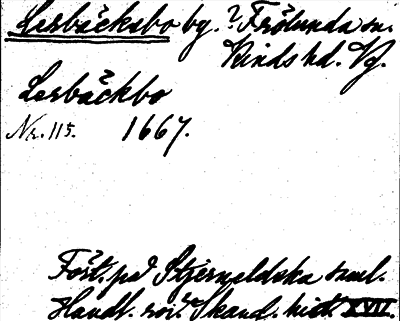 Lerbäcksbo by. ? Frölunda sn.
Kinds hd. Vg.
Lerbäckbo
Nr. 115. 1667.
Fört. på Stjerneldska saml.
Handl. rör. Skand. hist. XVII.